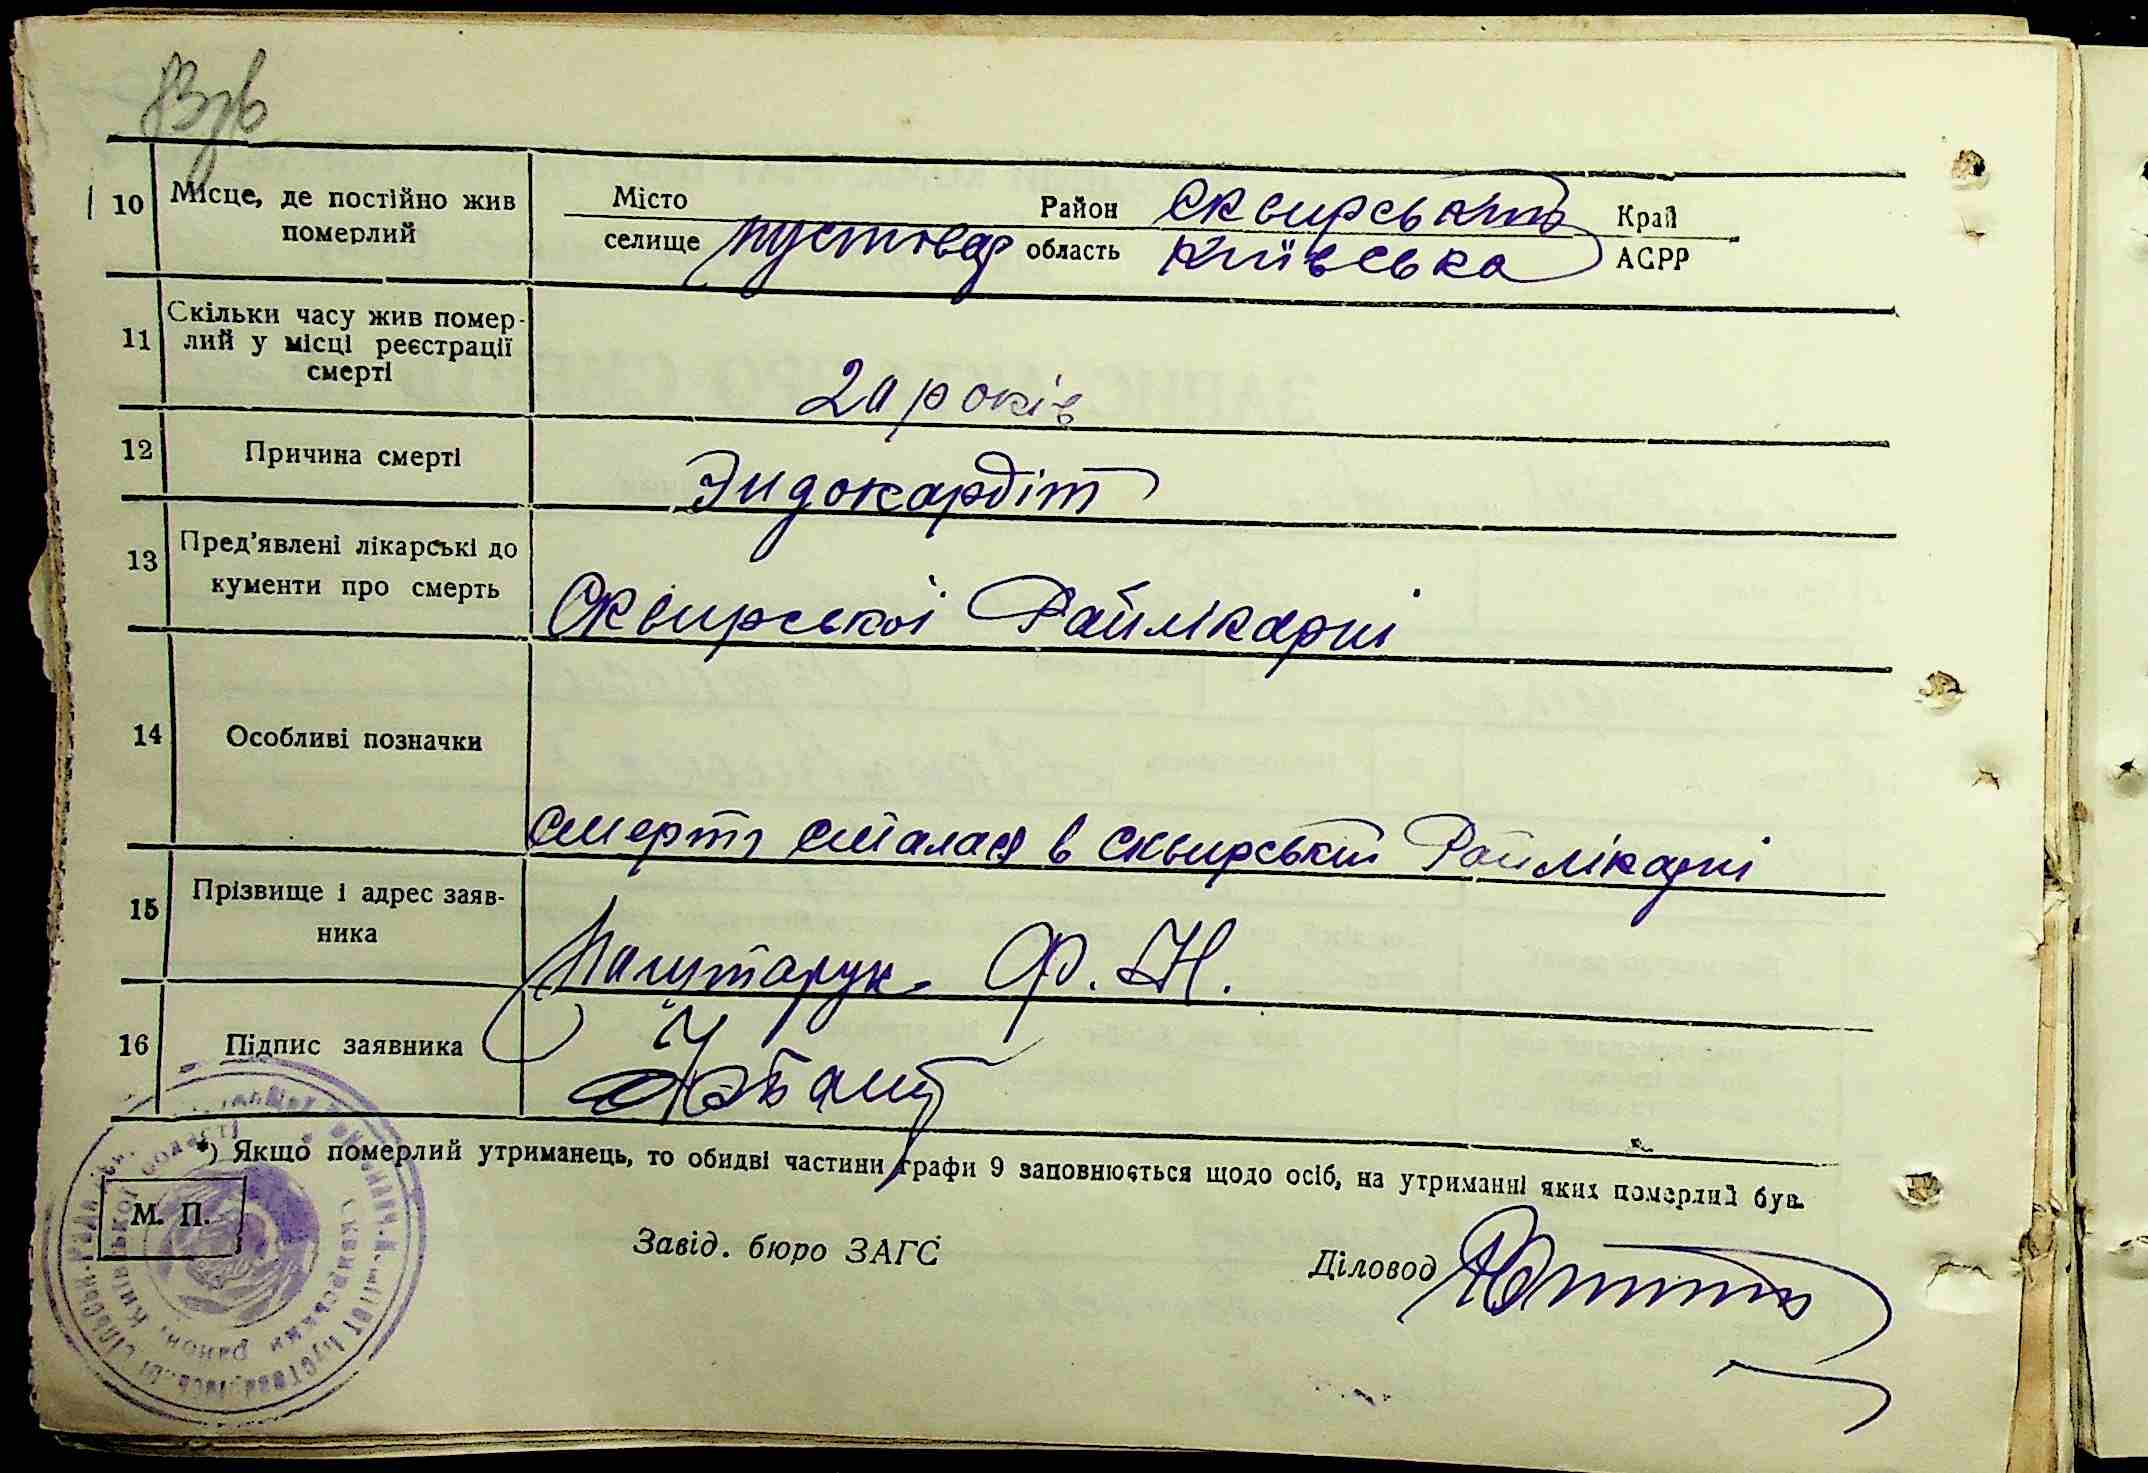 10 Місце, де постійно жив померлий
Місто Район Сквирський Край
селище пустовар область Київська АСРР
11 Скільки часу жив помер-
лий у місці реєстрації
смерті
років
12 Причина смерті Эндокардіт
13 Пред'явлені лікарські до
кументи про смерть
Сквирської Райлікарні
14 Особливі позначки
смерть сталася в сквирській Райлікарні
15 Прізвище і адрес заяв-
ника
Ф. Н.
16 Підпис заявника
*) Якщо померлий утриманець, то обидві частини графи 9 заповнюється щодо осіб, на утриманні яких померлий був.
М. П.
Завід. бюро ЗАГС Діловод